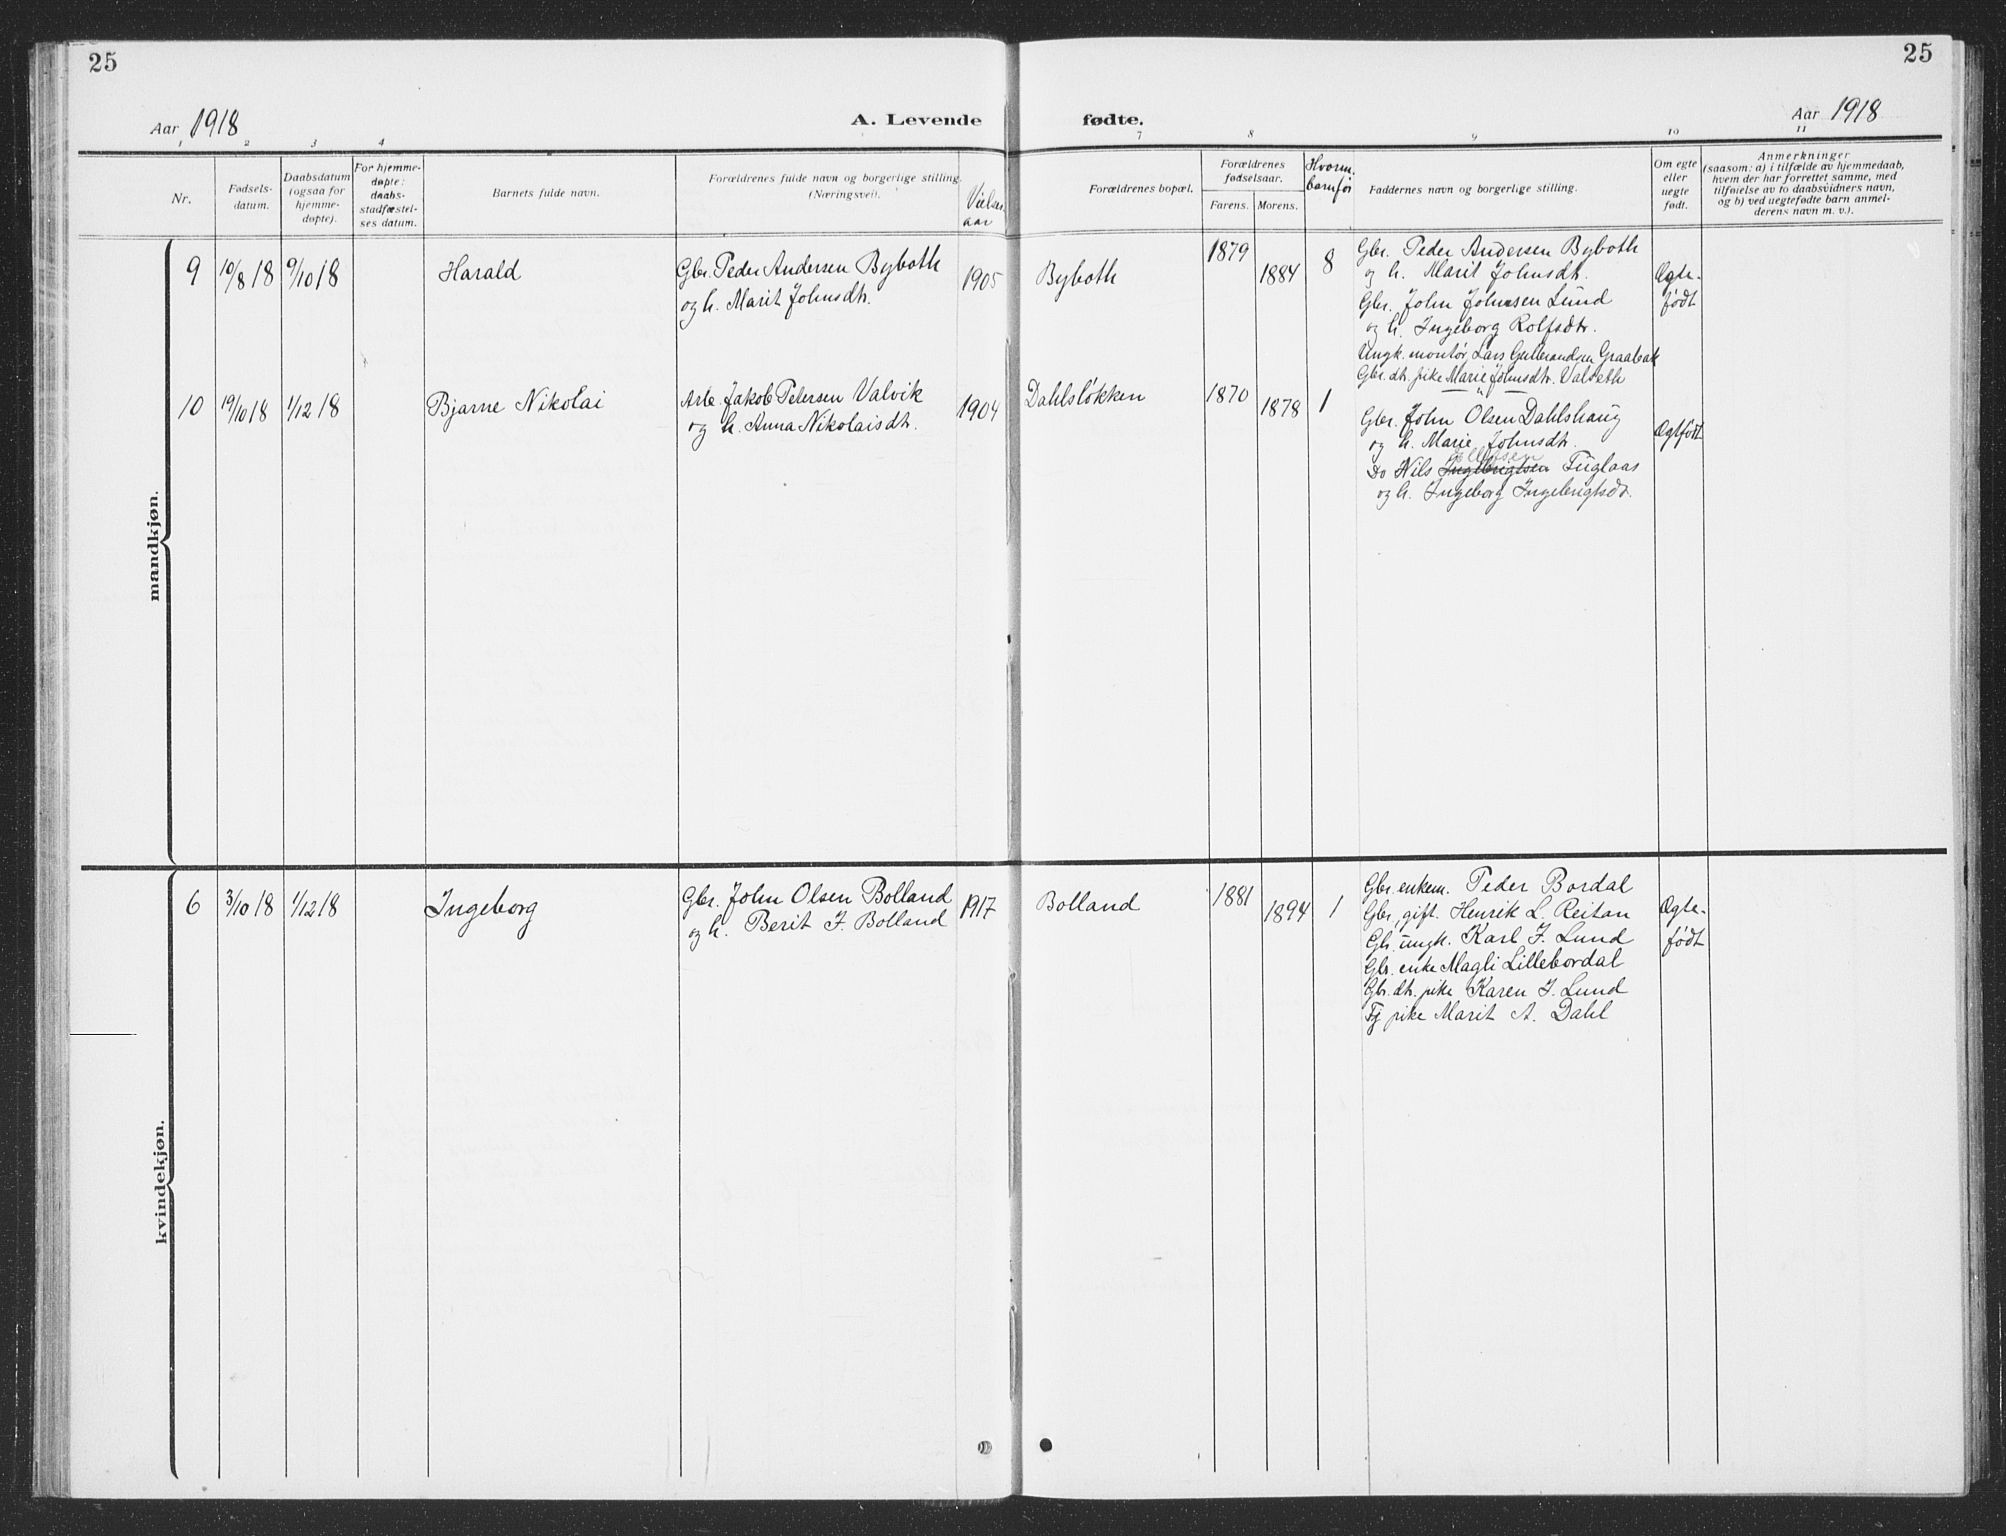 25
25
Aar 1918
A. Levende fødte.
Aar 1918
1 2 3 4 7 8 9 10 11
Nr.
Fødsels-
datum.
Daabsdatum
(ogsaa for
hjemme-
døpte).
For hjemme-
døpte:
daabs-
stadfæstel-
ses datum.
Barnets fulde navn.
Forældrenes fulde navn og borgerlige stilling.
(Næringsvei).
Vielses-
aar
Forældrenes bopæl.
Forældrenes
fødselsaar.
Farens. Morens.
Faddernes navn og borgerlige stilling.
Om egte
eller
uegte
født.
Anmerkninger
(saasom: a) i tilfælde av hjemmedaab,
hvem der har forrettet samme, med
tilføielse av to daabsvidners navn,
og b) ved uegtefødte barn anmel-
derens navn m. v.).
mandkjøn.
9 10/8 18 9/10 18 Harald
Gbr. Peder Andersen Byboth
og h. Marit Johnsdtr.
1905 Byboth 1879 1884 8
Gbr. Peder Andersen Byboth
og h. Marit Johnsdtr.
Gbr. John Johnsen Lund
og h. Ingeborg Rolfsdtr.
Ungk. montør Lars Gulbrandsen Graabak
Gbr. dtr. pike Marie Johnsdtr. Valseth
Øgte-
født
10 19/10 18 1/12 18 Bjarne Nikolai
Arb. Jakob Petersen Valvik
og h. Anna Nikolaisdtr.
1904 Dahlsløkken 1870 1878 1
Gbr. John Olsen Dahlshaug
og h. Marie Johnsdtr.
Do Nils Ingebrigtsen Fuglaas
og h. Ingeborg Ingebrigtsdtr.
Øgtfødt
kvindekjøn.
6 3/10 18 1/12 18 Ingeborg
Gbr. John Olsen Bolland
og h. Berit J. Bolland
1917 Bolland 1881 1894 1
Gbr. enkem. Peder Bordal
Gbr. gift. Henrik L. Reitan
Gbr. ungk. Karl J. Lund
Gbr. enke Magli Lillebordal
Gbr. dtr. pike Karen J. Lund
Tj pike Marit A. Dahl
Øgte-
født